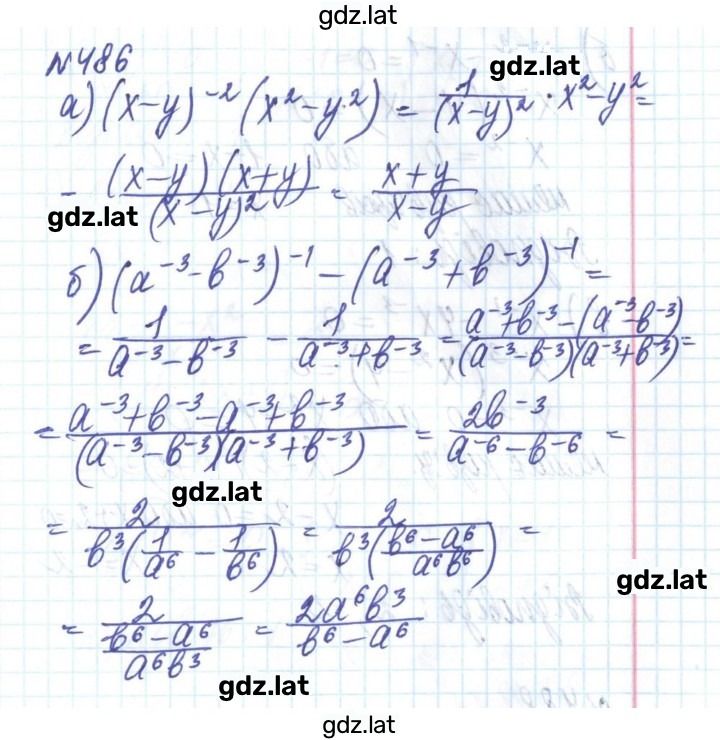 gdz.lat
№486
gdz.lat
а) (x-y)⁻² (x²-y²) = 1/(x-y)² · x²-y² =
- (x-y)(x+y)/(x-y)² = x+y/x-y
gdz.lat
б) (a⁻³-b⁻³)⁻¹ - (a⁻³+b⁻³)⁻¹ =
= 1/a⁻³-b⁻³ - 1/a⁻³+b⁻³ = a⁻³+b⁻³-(a⁻³-b⁻³)/(a⁻³-b⁻³)(a⁻³+b⁻³) =
= a⁻³+b⁻³-a⁻³+b⁻³/(a⁻³-b⁻³)(a⁻³+b⁻³) = 2b⁻³/a⁻⁶-b⁻⁶ =
gdz.lat
= 2/b³(1/a⁶ - 1/b⁶) = 2/b³(b⁶-a⁶/a⁶b⁶) =
gdz.lat
= 2/(b⁶-a⁶/a⁶b³) = 2a⁶b³/b⁶-a⁶
gdz.lat
gdz.lat